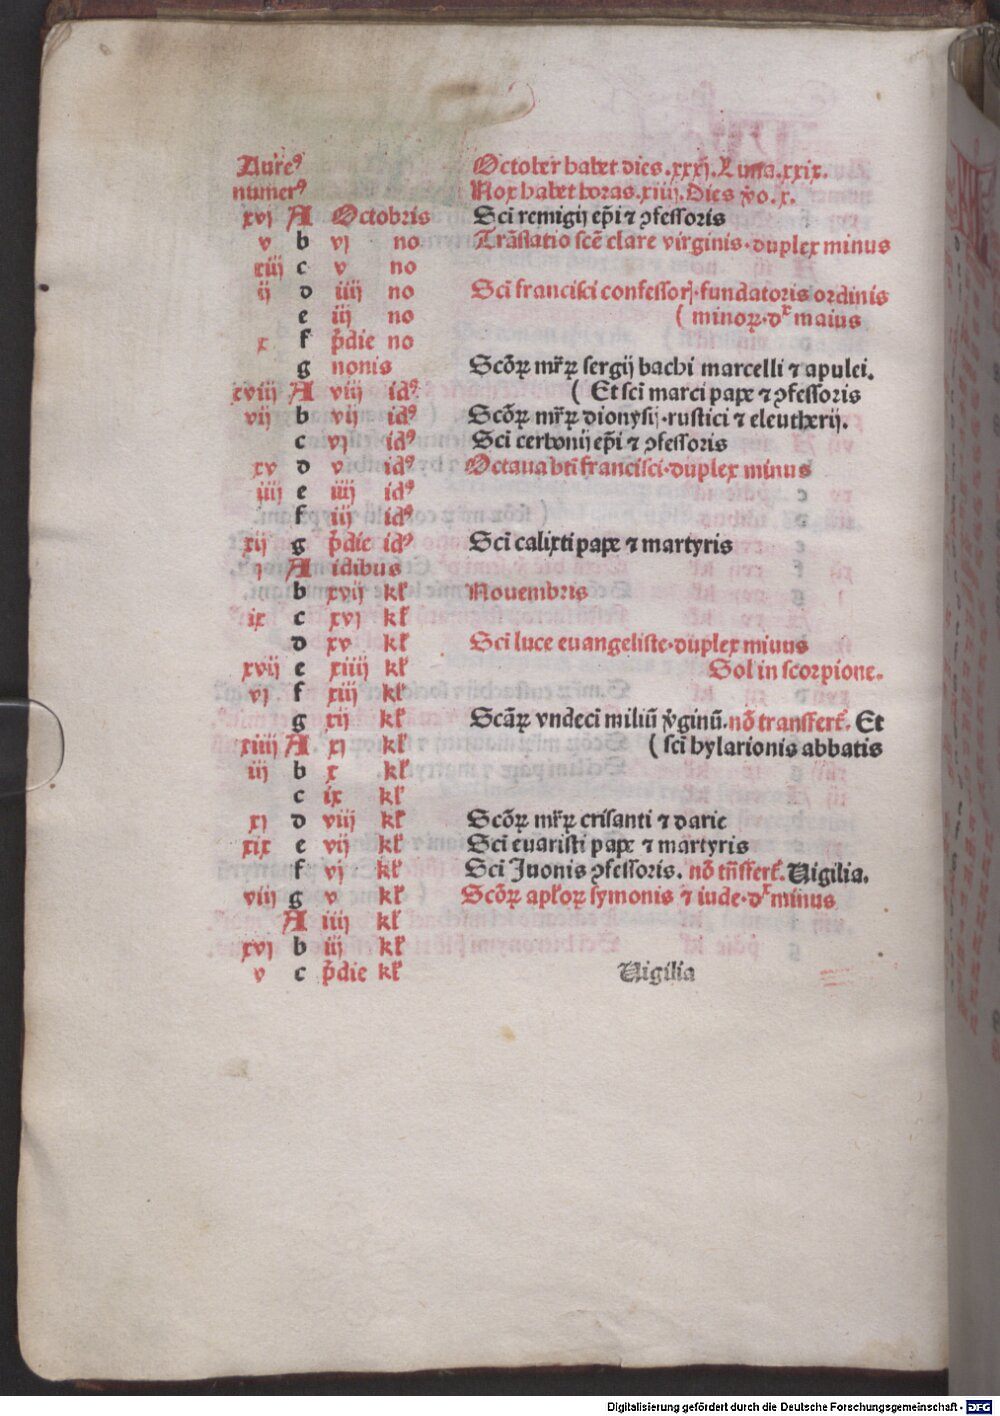 Aure⁹ October habet dies .xxxj. Luna .xxix.
numer⁹ Nox habet horas .xiiij. Dies ꝟo .x.
xvj A Octobris Sci̅ remigij ep̅i ⁊ ꝯfessoris
v b vj no Trāslatio sce̅ clare virginis · duplex minus
xiij c v no
ij d iiij no Sci̅ francisci confessorꝭ · fundatoris ordinis
e iij no ( minoꝝ · dx maius
x f p̅die no
g nonis Scōꝝ mr̅ꝝ sergij bachi marcelli ⁊ apulei.
xviij A viij id⁹ ( Et sci̅ marci pape ⁊ ꝯfessoris
vij b vij id⁹ Scōꝝ mr̅ꝝ dionysij · rustici ⁊ eleutherij.
c vj id⁹ Sci̅ cerbonij ep̅i ⁊ ꝯfessoris
xv d v id⁹ Octaua bti̅ francisci · duplex minus
iiij e iiij id⁹
f iij id⁹
xij g p̅die id⁹ Sci̅ calixti pape ⁊ martyris
j A idibus
b xvij kl̅ Nouembris
ix c xvj kl̅
d xv kl̅ Sci̅ luce euangeliste · duplex miuus
xvij e xiiij kl̅ Sol in scorpione.
vj f xiij kl̅
g xij kl̅ Scāꝝ vndeci miliū ꝟginū. nō transfert᷑. Et
xiiij A xj kl̅ ( sci̅ hylarionis abbatis
iij b x kl̅
c ix kl̅
xj d viij kl̅ Scōꝝ mr̅ꝝ crisanti ⁊ darie
xix e vij kl̅ Sci̅ euaristi pape ⁊ martyris
f vj kl̅ Sci̅ Iuonis ꝯfessoris. nō tn̅sfert᷑. Uigilia.
viij g v kl̅ Scōꝝ apl̅oꝝ symonis ⁊ iude · dx minus
A iiij kl̅
xvj b iij kl̅
v c p̅die kl̅ Uigilia
Digitalisierung gefördert durch die Deutsche Forschungsgemeinschaft - DFG